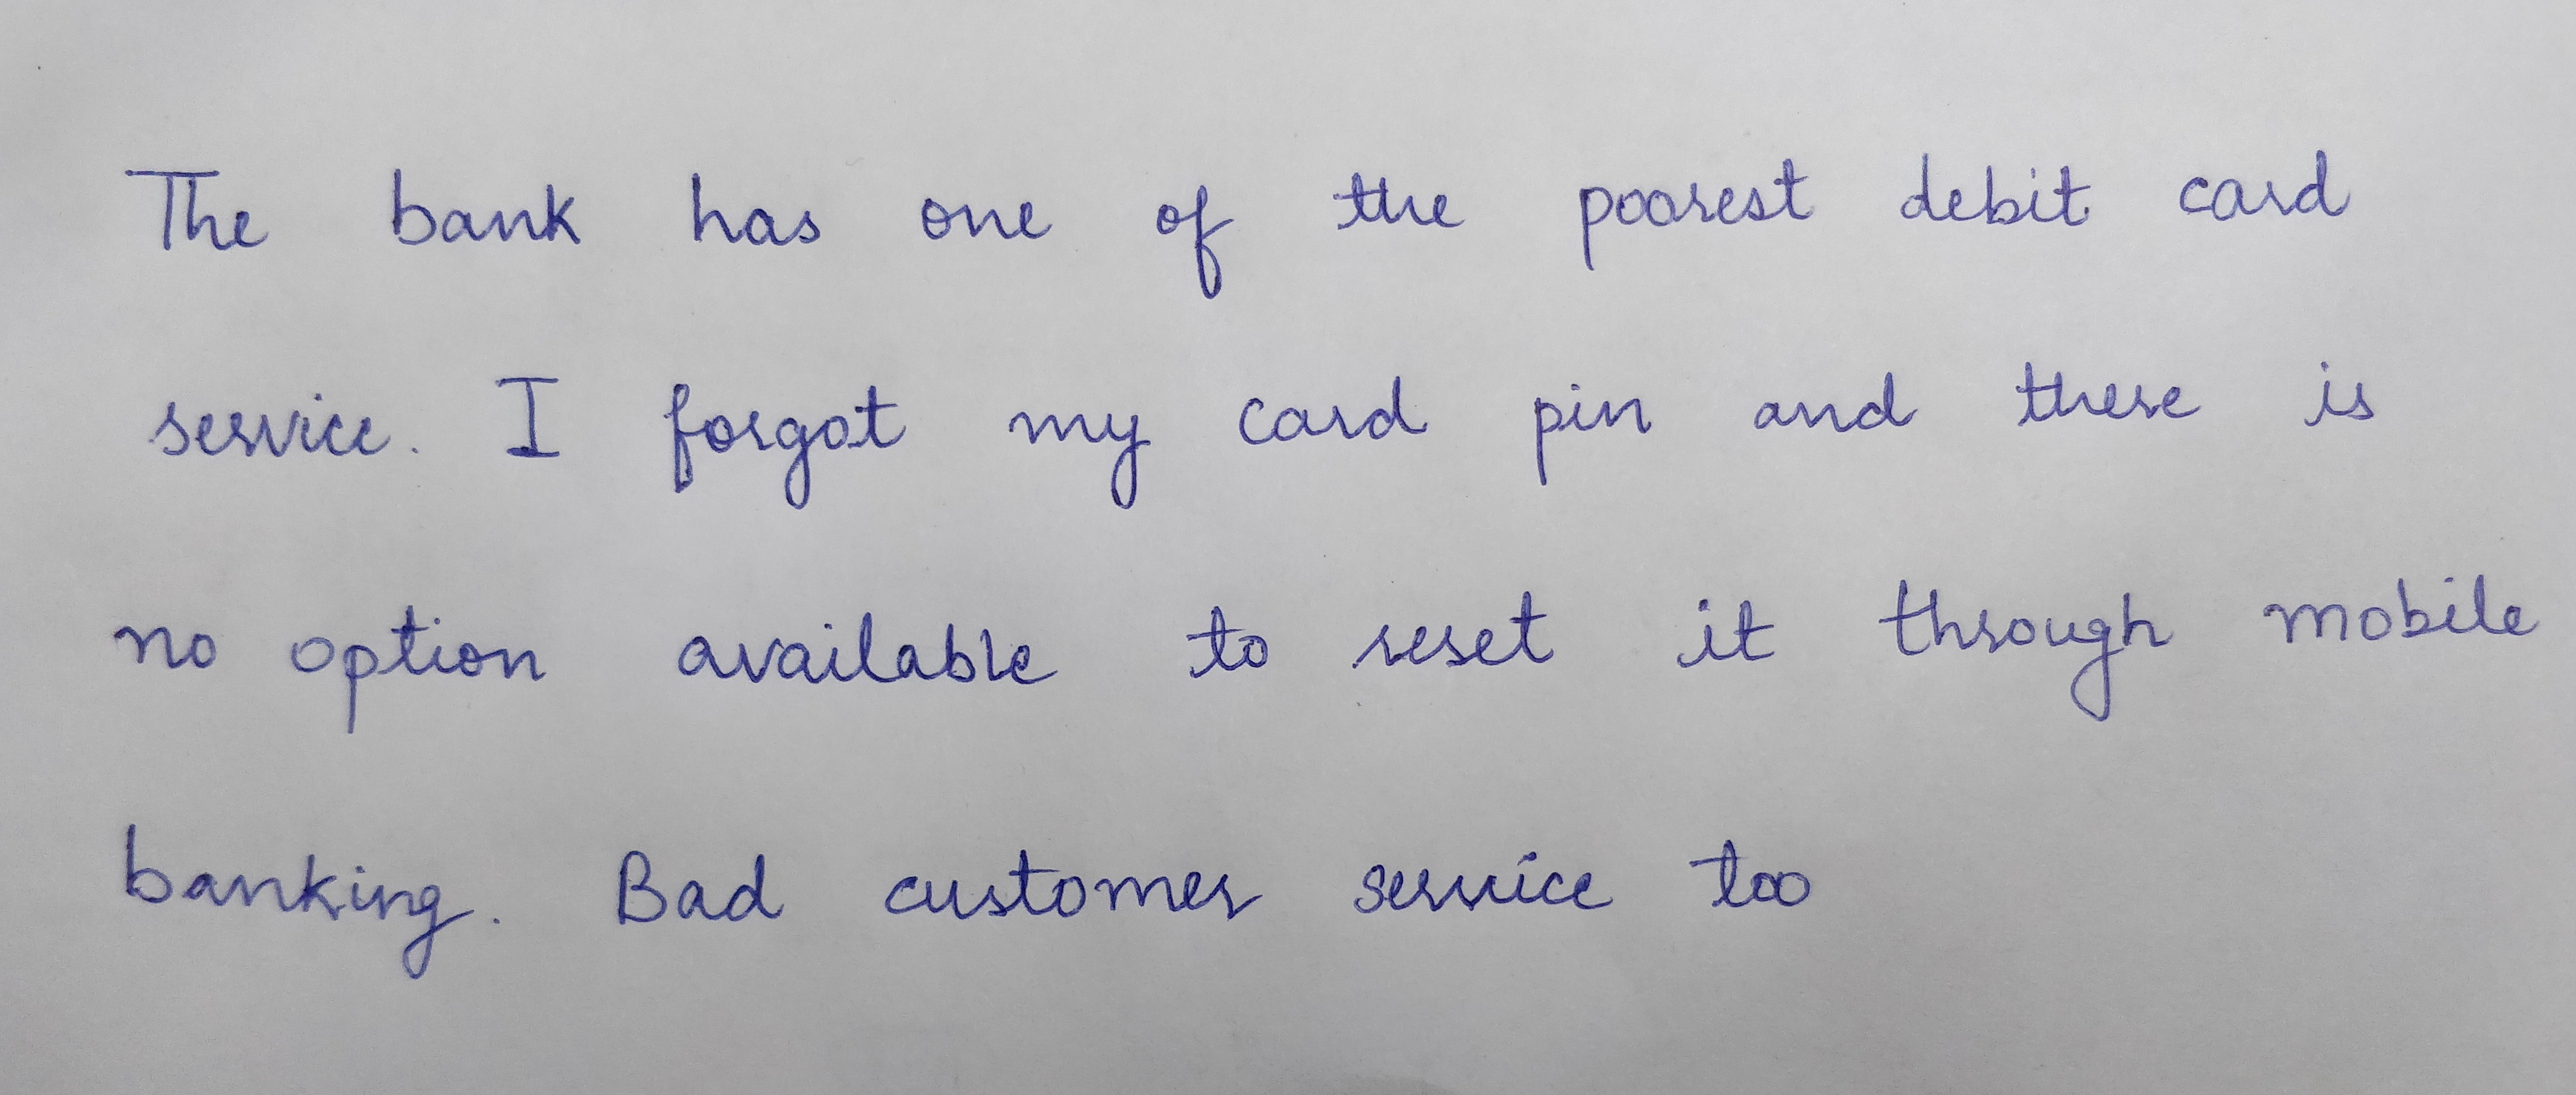 The bank has one of the poorest debit card
service. I forgot my card pin and there is
no option available to reset it through mobile
banking. Bad customer service too